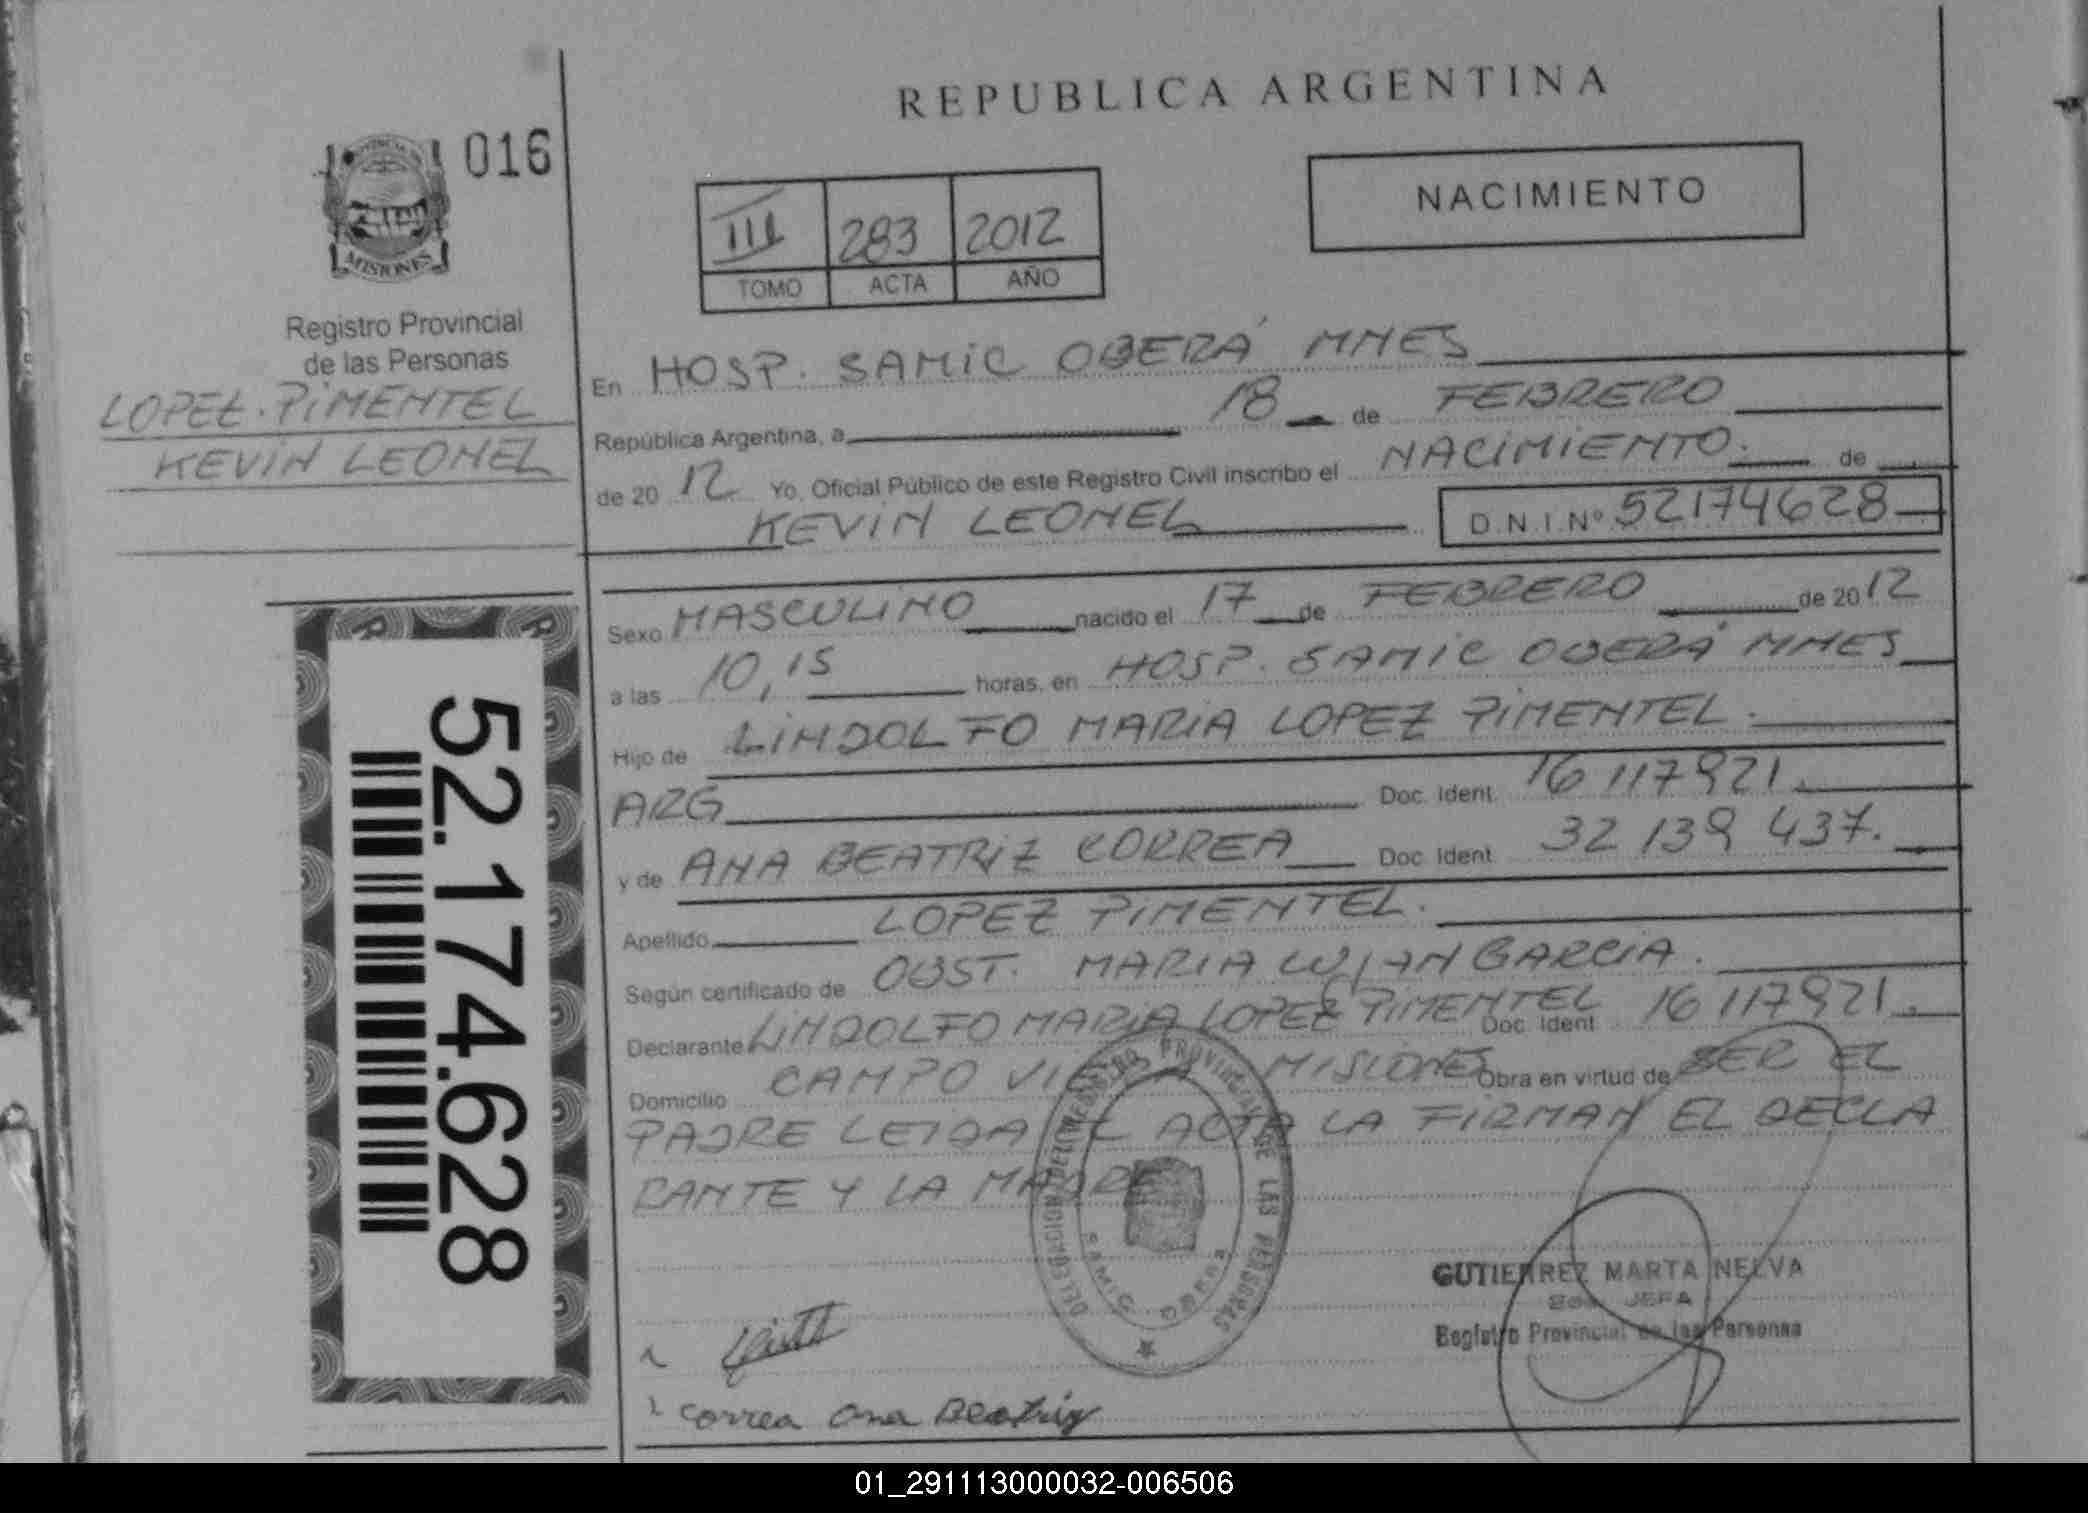 REPUBLICA ARGENTINA
016
NACIMIENTO
III 283 2012
TOMO ACTA AÑO
MISIONES
Registro Provincial
de las Personas
LOPEZ PIMENTEL
KEVIN LEONEL
En HOSP. SAMIC OBERÁ MNES
República Argentina, a 18 de FEBRERO
de 20 12 Yo, Oficial Público de este Registro Civil inscribo el NACIMIENTO. de
KEVIN LEONEL D.N.I.Nº 52174628
Sexo MASCULINO nacido el 17 de FEBRERO de 2012
a las 10,15 horas, en HOSP. SAMIC OBERÁ MNES
Hijo de LINDOLFO MARIA LOPEZ PIMENTEL.
ARG Doc. Ident. 16 117921.
y de ANA BEATRIZ CORREA Doc. Ident. 32 139 437.
Apellido LOPEZ PIMENTEL.
Según certificado de OBST. MARIA LUJAN GARCIA.
Declarante LINDOLFO MARIA LOPEZ PIMENTEL Doc. Ident. 16 117921.
Domicilio CAMPO VIERA MISIONES Obra en virtud de SER EL
PADRE LEIDA EL ACTA LA FIRMAN EL DECLA
RANTE Y LA MADRE
DELEGACION DEL REGISTRO PROVINCIAL DE LAS PERSONAS
SAMIC OBERA
GUTIERREZ MARTA NELVA
JEFA
Registro Provincial de las Personas
Correa Ana Beatriz
52.174.628
01_291113000032-006506